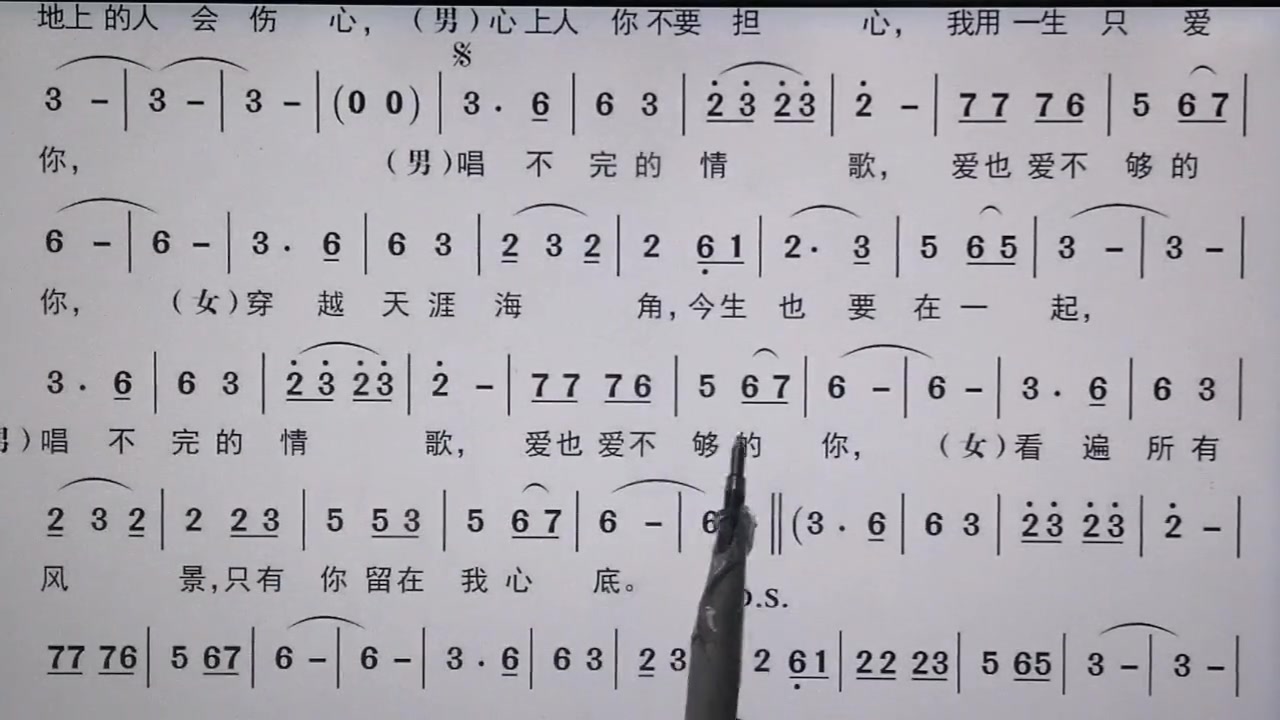 地上的人 会 伤 心，（男）心上人 你不要 担 心， 我用一生 只 爱
𝄋
3 – | 3 – | 3 – | (0 0) | 3 · 6 | 6 3 | 2̇ 3̇ 2̇ 3̇ | 2̇ – | 7 7 7 6 | 5 6 7 |
你， （男）唱 不 完 的 情 歌， 爱也 爱不 够 的
6 – | 6 – | 3 · 6 | 6 3 | 2 3 2 | 2 6̣ 1 | 2 · 3 | 5 6 5 | 3 – | 3 – |
你， （女）穿 越 天 涯 海 角，今生 也 要 在 一 起，
3 · 6 | 6 3 | 2̇ 3̇ 2̇ 3̇ | 2̇ – | 7 7 7 6 | 5 6 7 | 6 – | 6 – | 3 · 6 | 6 3 |
）唱 不 完 的 情 歌， 爱也 爱不 够 的 你， （女）看 遍 所 有
2 3 2 | 2 2 3 | 5 5 3 | 5 6 7 | 6 – | 6 ‖ (3 · 6 | 6 3 | 2̇ 3̇ 2̇ 3̇ | 2̇ – |
风 景，只有 你 留在 我 心 底。
.S.
7 7 7 6 | 5 6 7 | 6 – | 6 – | 3 · 6 | 6 3 | 2 3 2 6̣ 1 | 2 2 2 3 | 5 6 5 | 3 – | 3 – |